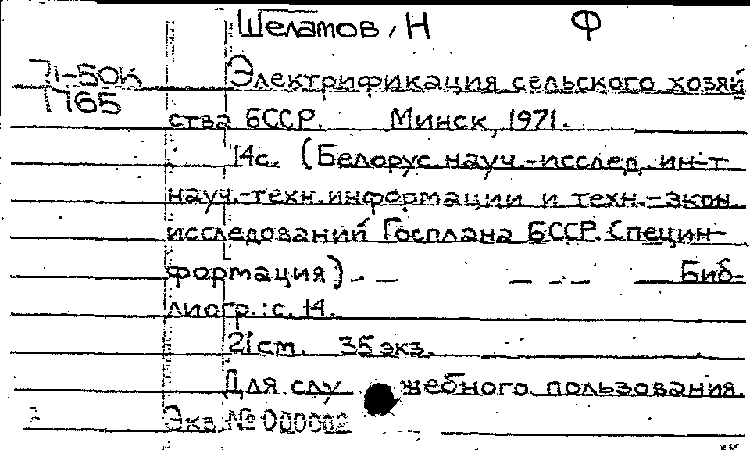 Шелатов, Н Ф
71-50к Электрификация сельского хозяй
1765
ства БССР. Минск, 1971.
14с. (Белорус. науч.-исслед. ин-т
науч.-техн. информации и техн.-экон.
исследований Госплана БССР. Специн-
формация). Биб-
лиогр.: с. 14.
21 см. 35 экз.
Для служебного пользования.
Экз. № 000002